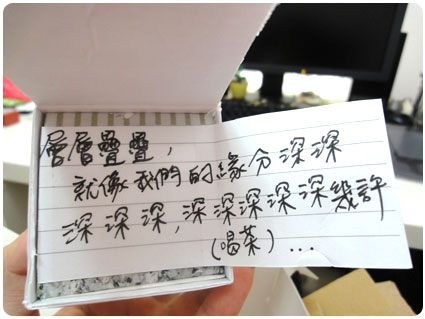 層層疊疊,
就像我們的緣分深深
深深深,深深深深深幾許
(喝茶)...